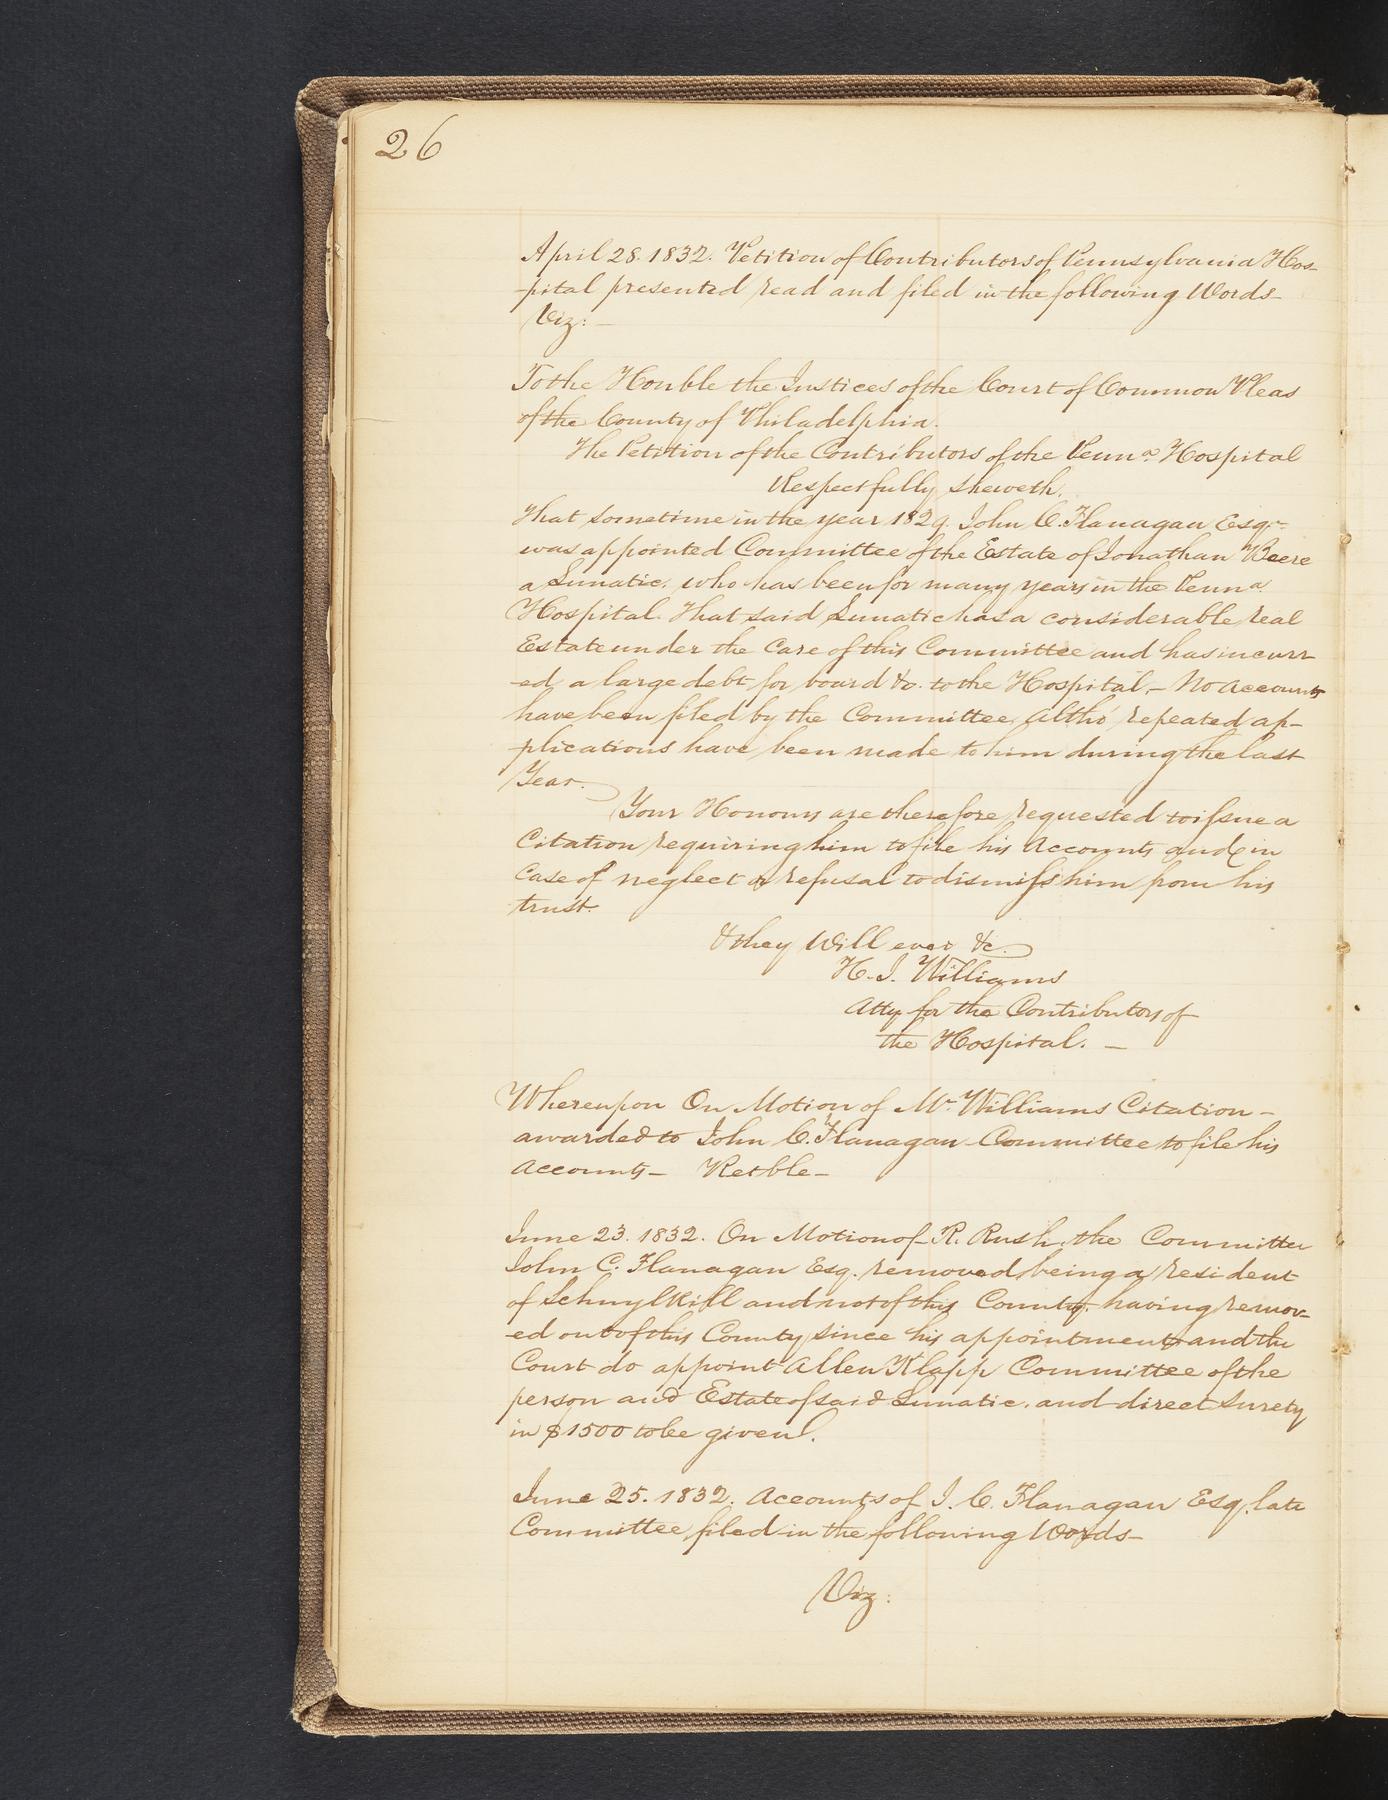 26
April 28. 1832. Petition of Contributors of Pennsylvania Hos-
-pital presented read and filed in the following Words-
Viz: -
To the Honble the Justices of the Court of Common Pleas
of the County of Philadelphia.
The Petition of the Contributors of the Penna. Hospital
Respectfully sheweth.
That sometime in the year 1829. John C. Flanagan Esqr.
was appointed Committee of the Estate of Jonathan Beere
a Lunatic. who has been for many years in the Penna.
Hospital. That said Lunatic has a considerable real
Estate under the care of this Committee and has incurr
-ed a large debt for board &c. to the Hospital. - No accounts
have been filed by the Committee, altho' repeated ap-
-plications have been made to him during the last
Year.
Your Honours are therefore requested to issue a
Citation requiring him to file his Accounts and in
case of neglect or refusal to dismiss him from his
trust.
& they will ever &c.
H. J. Williams
Atty for the Contributors of
the Hospital. -
Whereupon On Motion of Mr. Williams Citation -
awarded to John C. Flanagan Committee to file his
accounts - Retble -
June 23. 1832. On Motion of R. Rush, the Committee
John C. Flanagan Esq. removed being a resident
of Schuylkill and not of this County, having remov-
-ed out of this County since his appointment and the
Court do appoint Allen Klapp Committee of the
person and Estate of said Lunatic. and direct surety
in $1500 to be given.
June 25. 1832. Accounts of J. C. Flanagan Esq. late
Committee filed in the following Words -
Viz: